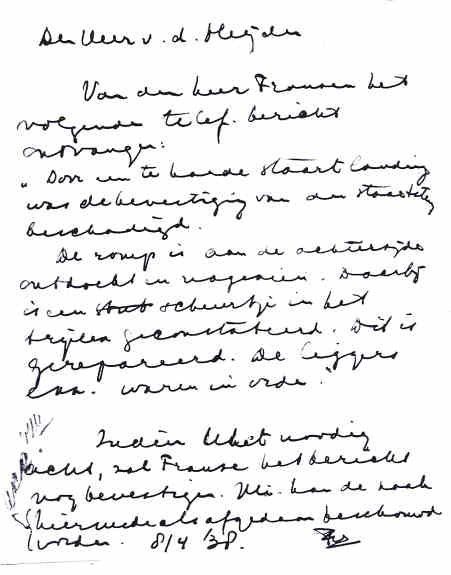 Den Heer v. d. Heijden
Van den heer Fransen het
volgende telef. bericht
ontvangen:
"Door een te harde staart landing
was de bevestiging van den staartsteg
beschadigd.
De romp is aan de achterzijde
ontdoekt en nagezien. Daarbij
is een stuk scheurtje in het
geconstateerd. Dit is
gerepareerd. De liggers
enz. waren in orde."
Indien U het noodig
acht, zal Franse het bericht
nog bevestigen. Mi. kan de zaak
hiermede als afgedaan beschouwd
worden. 8/4 '38.